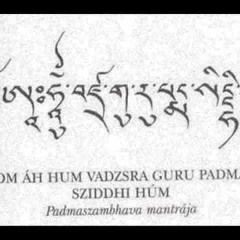 ཨཱཿ་ཧཱུྃ་བཛྲ་གུ་རུ་པདྨ་སིདྡྷི
OM ÁH HUM VADZSRA GURU PADMA
SZIDDHI HÚM
Padmaszambhava mantrája